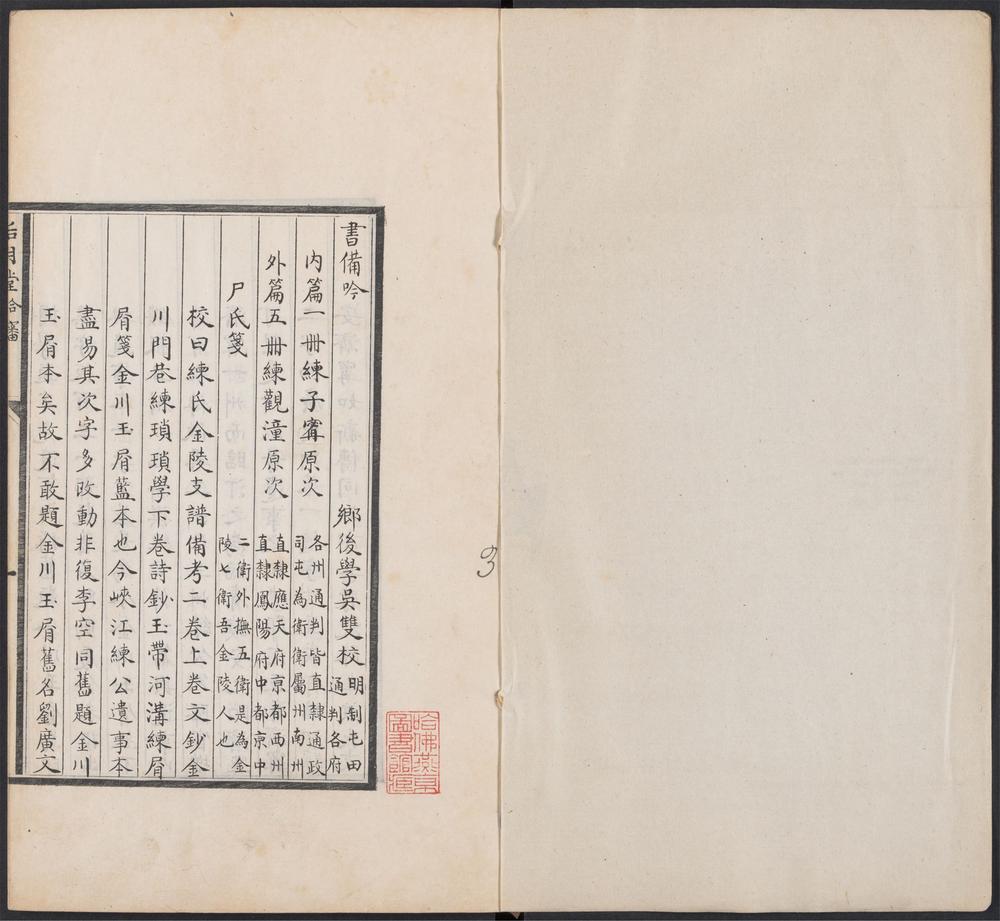 書備吟 鄉後學吳雙校 明制屯田
通判各府
內篇一冊練子甯原次 各州通判皆直隸通政
司屯為衛衛屬州南州
外篇五冊練觀潼原次 直隸應天府京都西州
直隸鳳陽府中都京中
尸氏箋 二衛外撫五衛是為金
陵七衛吾金陵人也
校曰練氏金陵支譜備考二卷上卷文鈔金
川門巷練瑣瑣學下卷詩鈔玉帶河溝練屑
屑箋金川玉屑藍本也今峽江練公遺事本
盡易其次字多改動非復李空同舊題金川
玉屑本矣故不敢題金川玉屑舊名劉廣文
月堂
哈佛燕京
圖書館藏
3